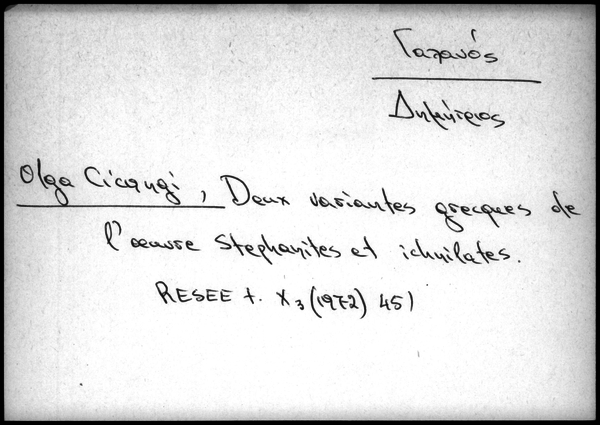 Γαλανός
Δημήτριος
Olga Cicanci, Deux variantes grecques de
l'œuvre Stephanites et ichnilates.
RESEE t. X₃ (1972) 451